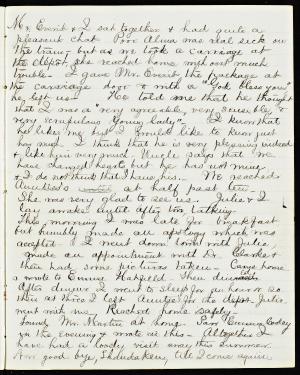 Mr. Everit & I sat together & had quite a
pleasant chat. Poor Alma was real sick on
the train, but as we took a carriage at
the depot, she reached home without much
trouble. I gave Mr. Everit the package at
the carriage door & with a "God bless you"
he left us. He told some that he thought
that I was a "very agreeable, very sensible &
very scrupulous young lady". I know that
he likes me but I would like to know just
how much. I think that he is very pleasing indeed
& like him very much. Uncle says that we
have changed hearts but he has not mine
& I do not think that I have his. We reached
Aunties's at half past ten.
She was very glad to see us. Julie & I
lay awake quite after two talking.
This morning I was late for breakfast
but humbly made an apology which was
accepted. I went down town with Julie,
made an appointment with Dr. Clarke &
then had some pictures taken. Came home
& wrote to Emma Hatfield. Then
After dinner I went to sleep for an hour or so
then at three I left Auntie's for the depot. Julie
went with me. Reached home safely.
Found Mr. Martin at home. Saw Emma Cooley
in the evening & wrote in this. Altogether I
have had a lovely visit away this Summer.
And good bye, till I come again